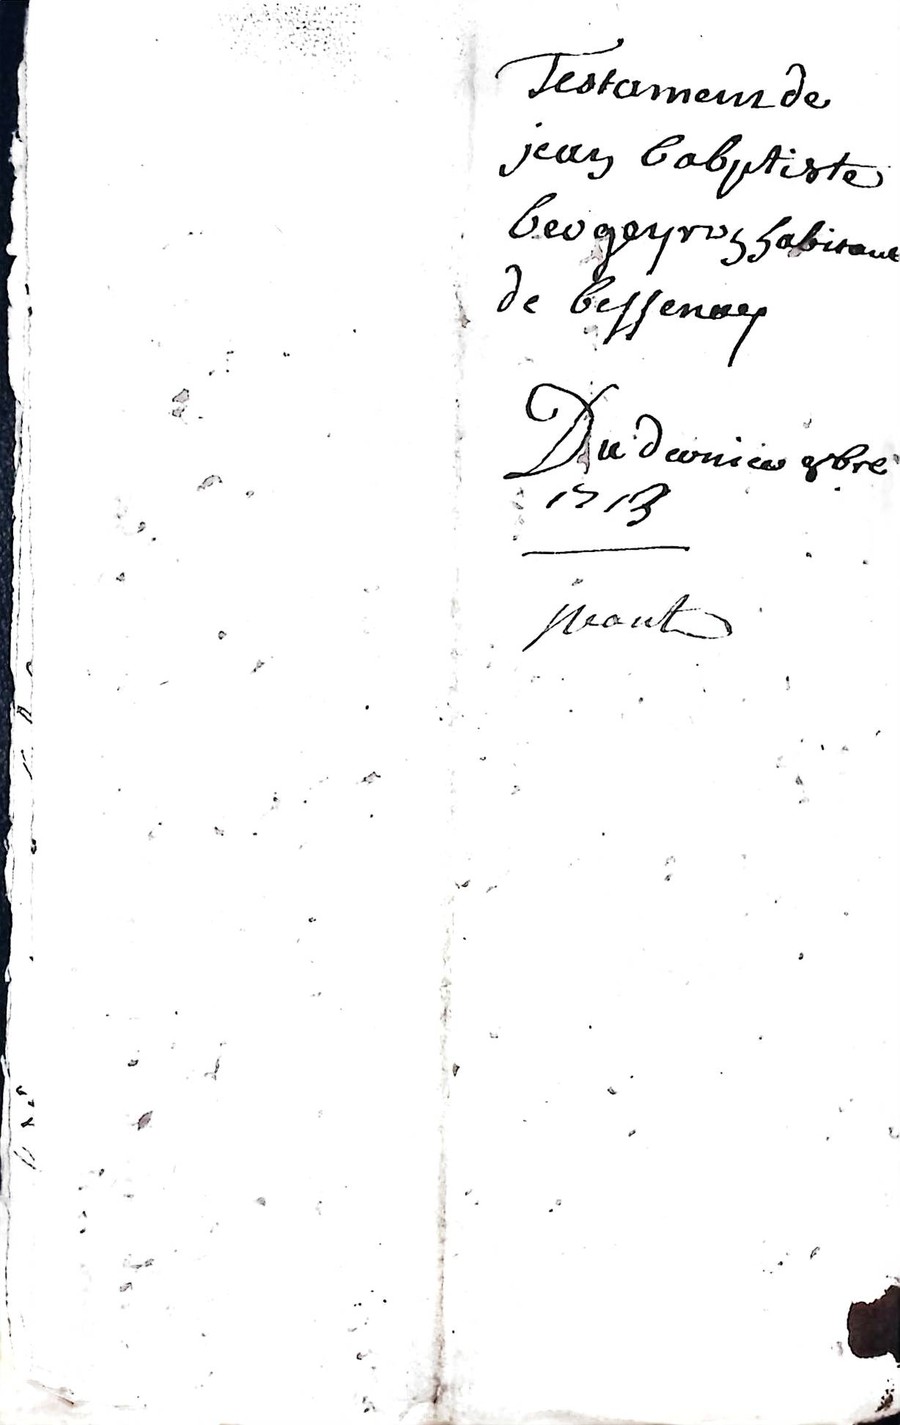 Testament de
jean babptiste
bergeyron habitant
de bessenay
Du dernier 9bre
1713